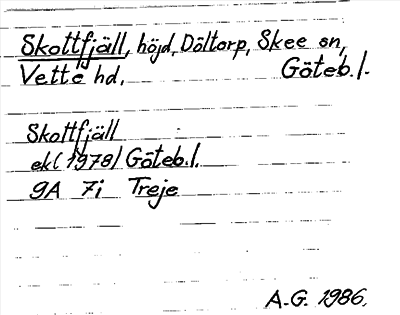 Skottfjäll, höjd, Döltorp, Skee sn,
Vette hd, Göteb.l.
Skottfjäll
ek (1978) Göteb.l.
9A 7i Treje
A-G. 1986.